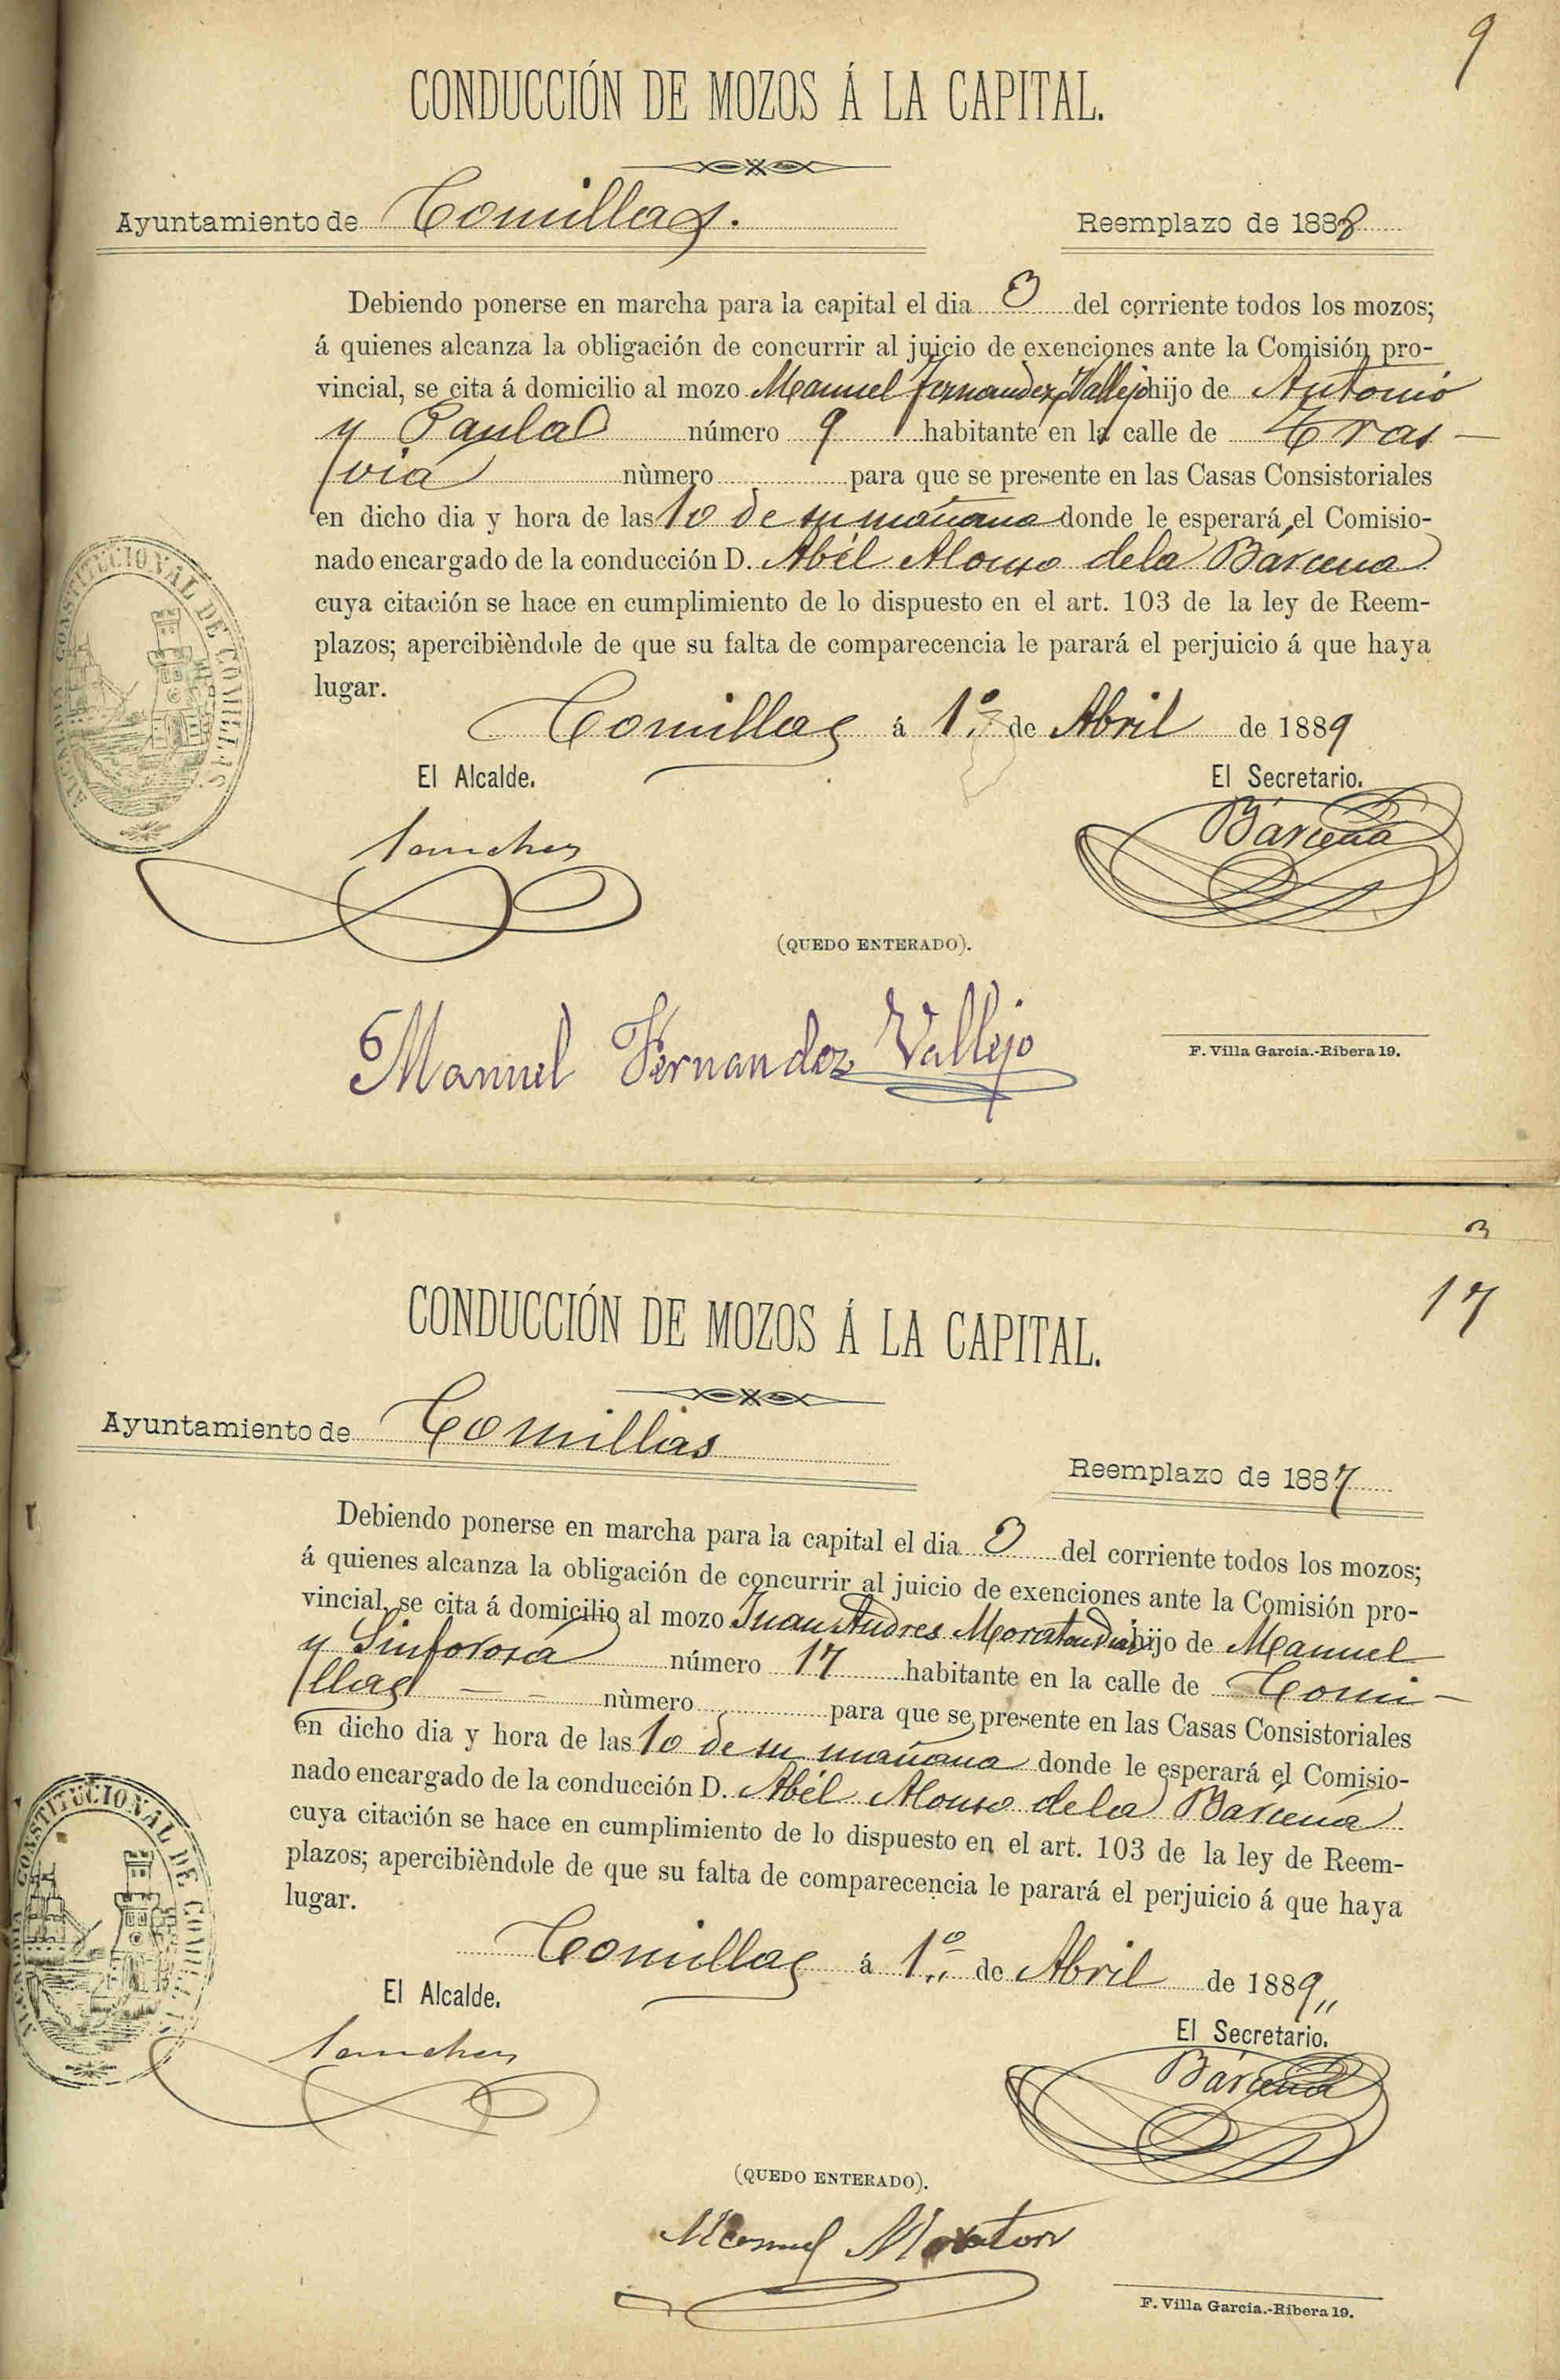 9
CONDUCCIÓN DE MOZOS Á LA CAPITAL.
Ayuntamiento de Comillas. Reemplazo de 1888
Debiendo ponerse en marcha para la capital el dia 3 del corriente todos los mozos;
á quienes alcanza la obligación de concurrir al juicio de exenciones ante la Comisión pro-
vincial, se cita á domicilio al mozo Manuel Fernandez Vallejo hijo de Antonio
y Paula número 9 habitante en la calle de Tras-
via nùmero para que se presente en las Casas Consistoriales
en dicho dia y hora de las 10 de su mañana donde le esperará el Comisio-
nado encargado de la conducción D. Abél Alonso de la Bárcena
cuya citación se hace en cumplimiento de lo dispuesto en el art. 103 de la ley de Reem-
plazos; apercibièndole de que su falta de comparecencia le parará el perjuicio á que haya
lugar.
Comillas á 1º de Abril de 1889
El Alcalde. El Secretario.
Sanchez Bárcena
CONSTITUCIONAL DE COMILLAS
(QUEDO ENTERADO).
Manuel Fernandez Vallejo
F. Villa García.-Ribera 19.
3
17
CONDUCCIÓN DE MOZOS Á LA CAPITAL.
Ayuntamiento de Comillas Reemplazo de 1887
Debiendo ponerse en marcha para la capital el dia 3 del corriente todos los mozos;
á quienes alcanza la obligación de concurrir al juicio de exenciones ante la Comisión pro-
vincial, se cita á domicilio al mozo Juan Andres Moraton hijo de Manuel
y Sinforosa número 17 habitante en la calle de Comi-
llas nùmero para que se presente en las Casas Consistoriales
en dicho dia y hora de las 10 de su mañana donde le esperará el Comisio-
nado encargado de la conducción D. Abél Alonso de la Bárcena
cuya citación se hace en cumplimiento de lo dispuesto en el art. 103 de la ley de Reem-
plazos; apercibièndole de que su falta de comparecencia le parará el perjuicio á que haya
lugar.
Comillas á 1º de Abril de 1889
El Alcalde.
El Secretario.
Sanchez Bárcena
CONSTITUCIONAL DE
(QUEDO ENTERADO).
Manuel Moraton
F. Villa García.-Ribera 19.